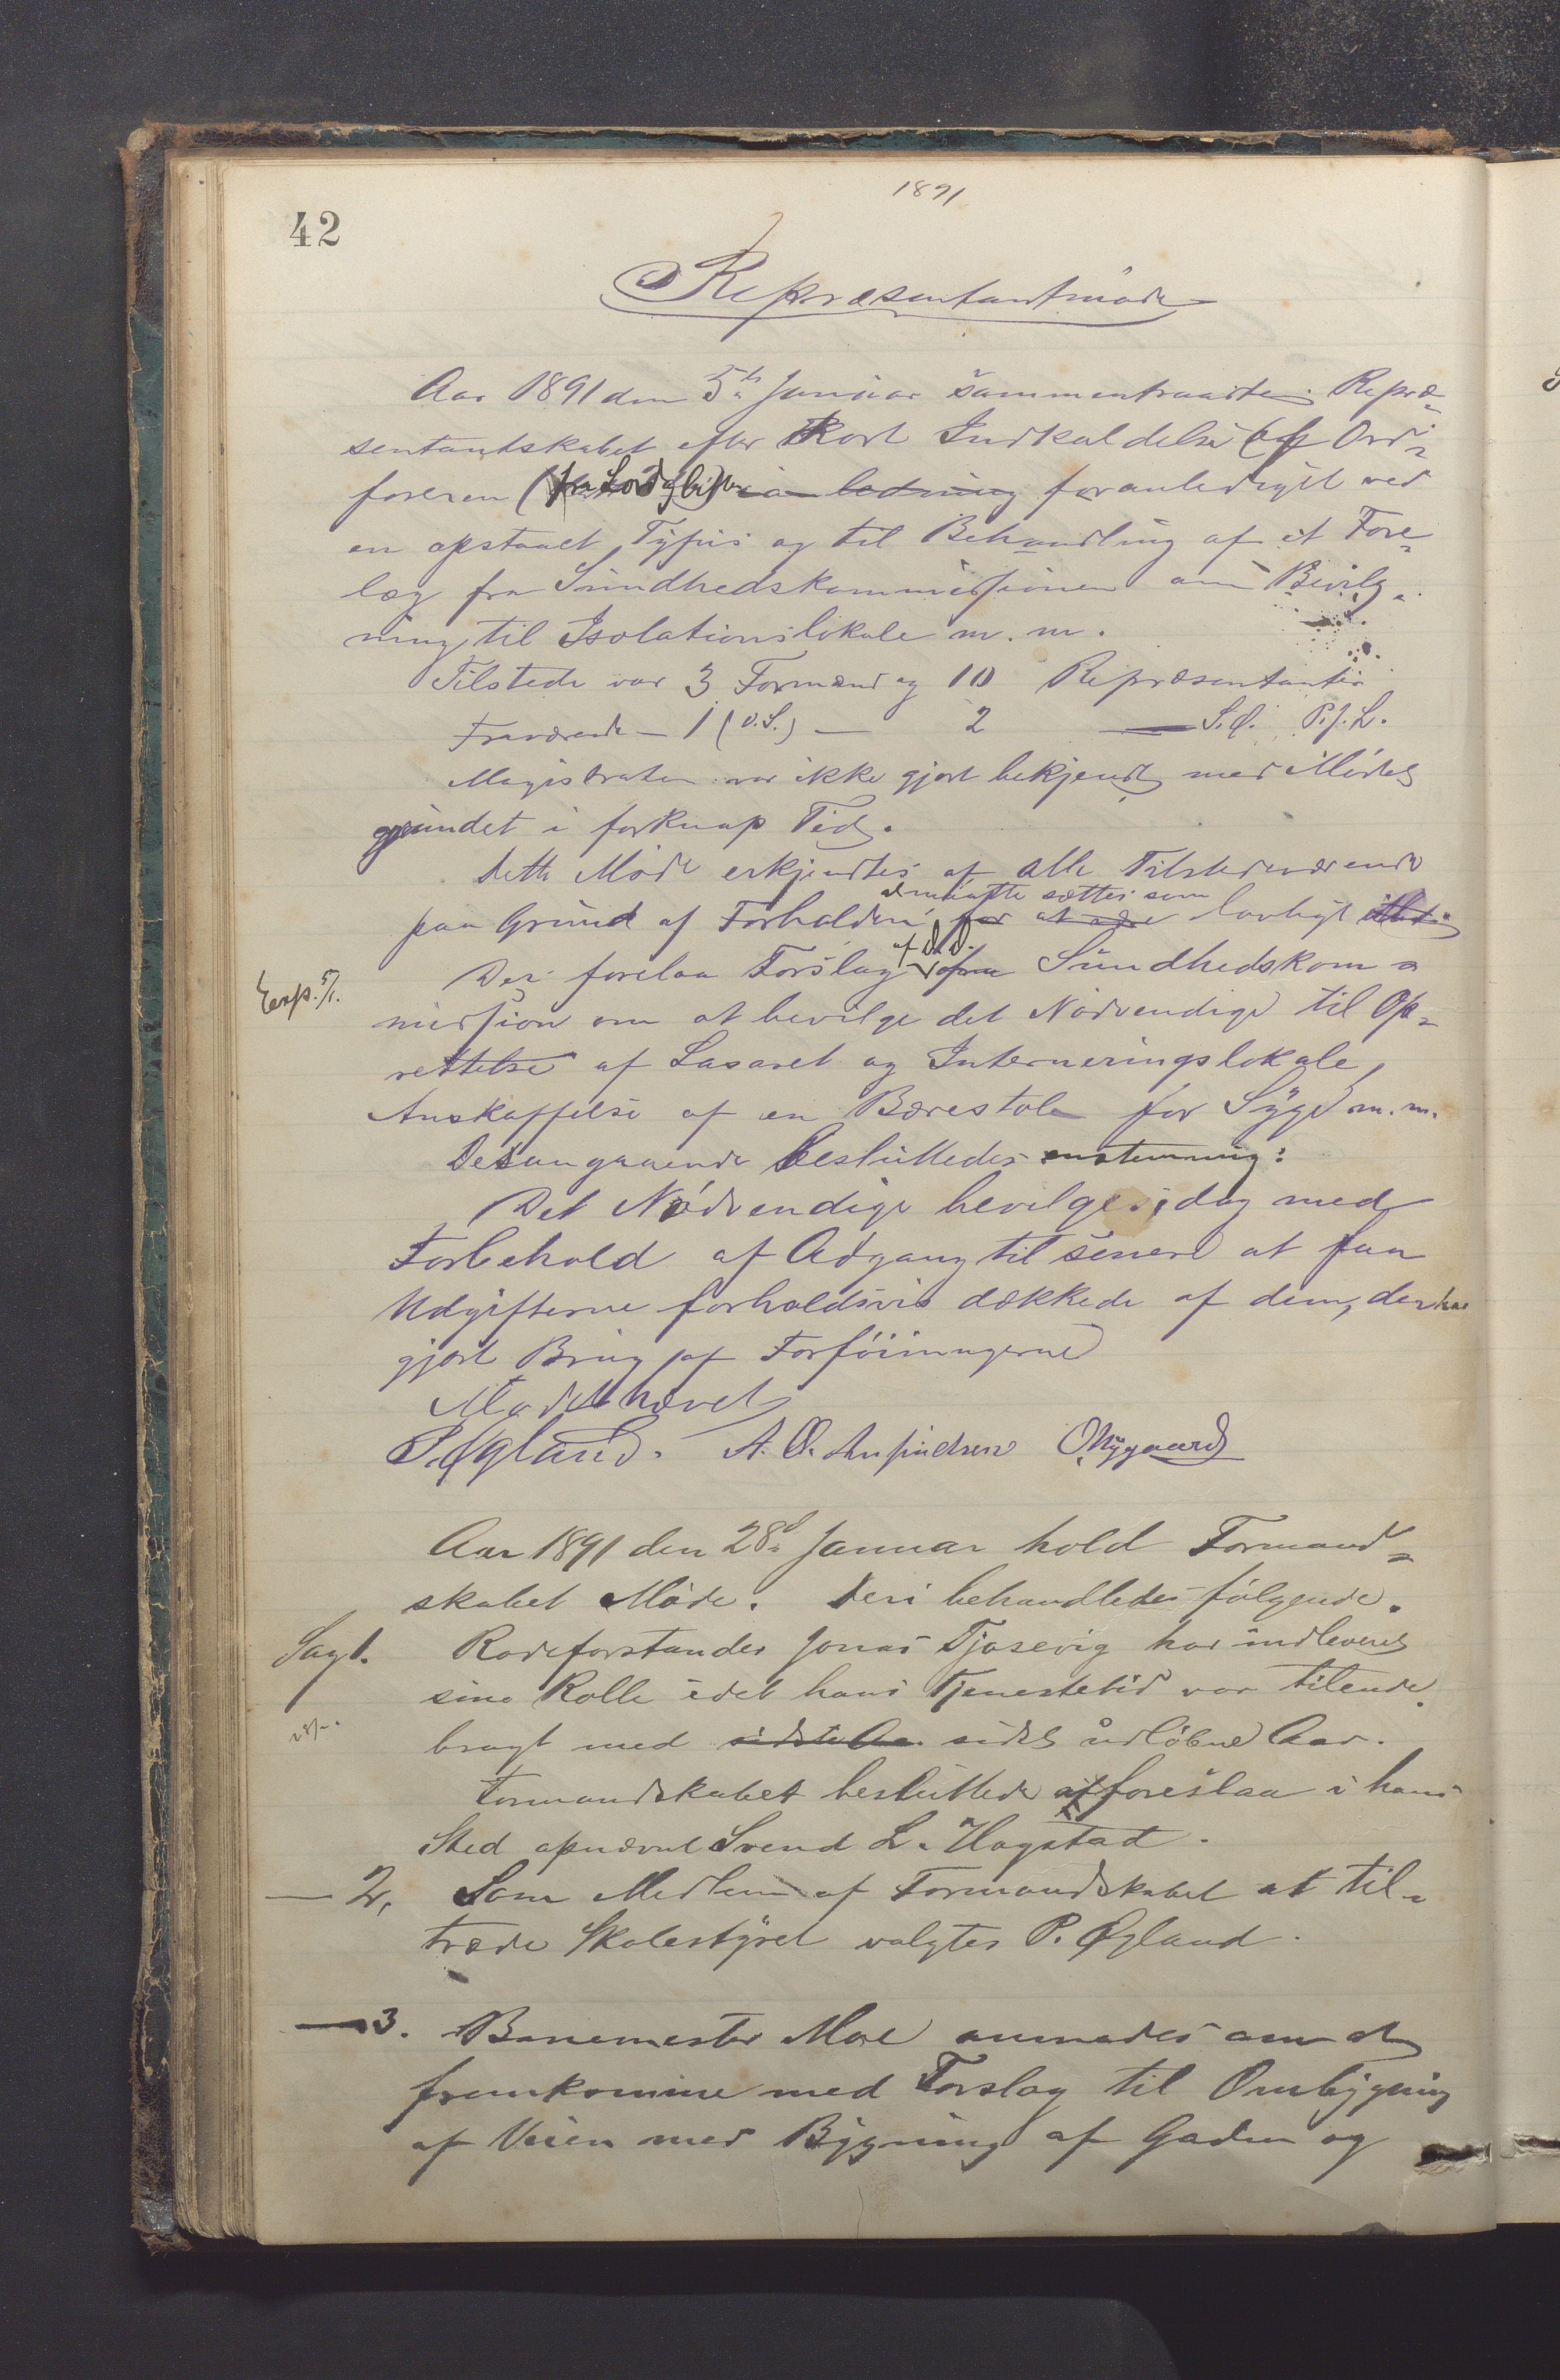 1891
42
Repræsentantmöde
Aar 1891 den 5te Januar sammentraadte Repræ-
sentantskabet efter Kort Indkaldelse af Ord-
föreren foranlediget ved
en opstaaet Tyfus og til Behandling af et Fore-
læg fra Sundhedskommissionen om Bevilg-
ning til Isolationslokale m. m.
Tilstede var 3 Formænd og 10 Repræsentanter
Fraværende – 1 (O.S.) – 2 — S.Q. P.J.L.
Magistraten var ikke gjort bekjendt med Mödet
grundet i forknap Tid.
Dette Möde erkjendtes af alle Tilstedeværende
sættes som
paa Grund af Forholdene for at være lovligt
af
Exp. 5/1.
Der forelaa Forslag fra Sundhedskom-
mission om at bevilge det Nödvendige til Op-
rettelse af Lasaret og Interneringslokale,
Anskaffelse af en Bærestol for Syge m. m.
Desangaaende besluttedes enstemmig:
Det Nödvendige bevilges idag med
Forbehold af Adgang til senere at faa
Udgifterne forholdsvis dækkede af dem, der har
gjort Brug af Forföiningerne
Mödet hævet
P. Øgland. A. O. O Nygaard
Aar 1891 den 28d Januar hold Formand-
skabet Möde. Deri behandledes fölgende.
Sag 1. Rodeforstander Jonas Tjosevig har indleveret
sine Rolle idet hans Tjenestetid var tilende
28/1.
bragt med sidste Aar sidst udlöbne Aar.
Formandskabet besluttede at foreslaa i hans
Sted opnævnt Svend L. Hogstad.
— 2, Som Medlem af Formandskabet at til-
træde Skolestyret valgtes P. Øgland.
— 3. Banemester Moe anmodes om at
fremkomme med Forslag til Ombygning
af Veien med Bygning af Gaden og